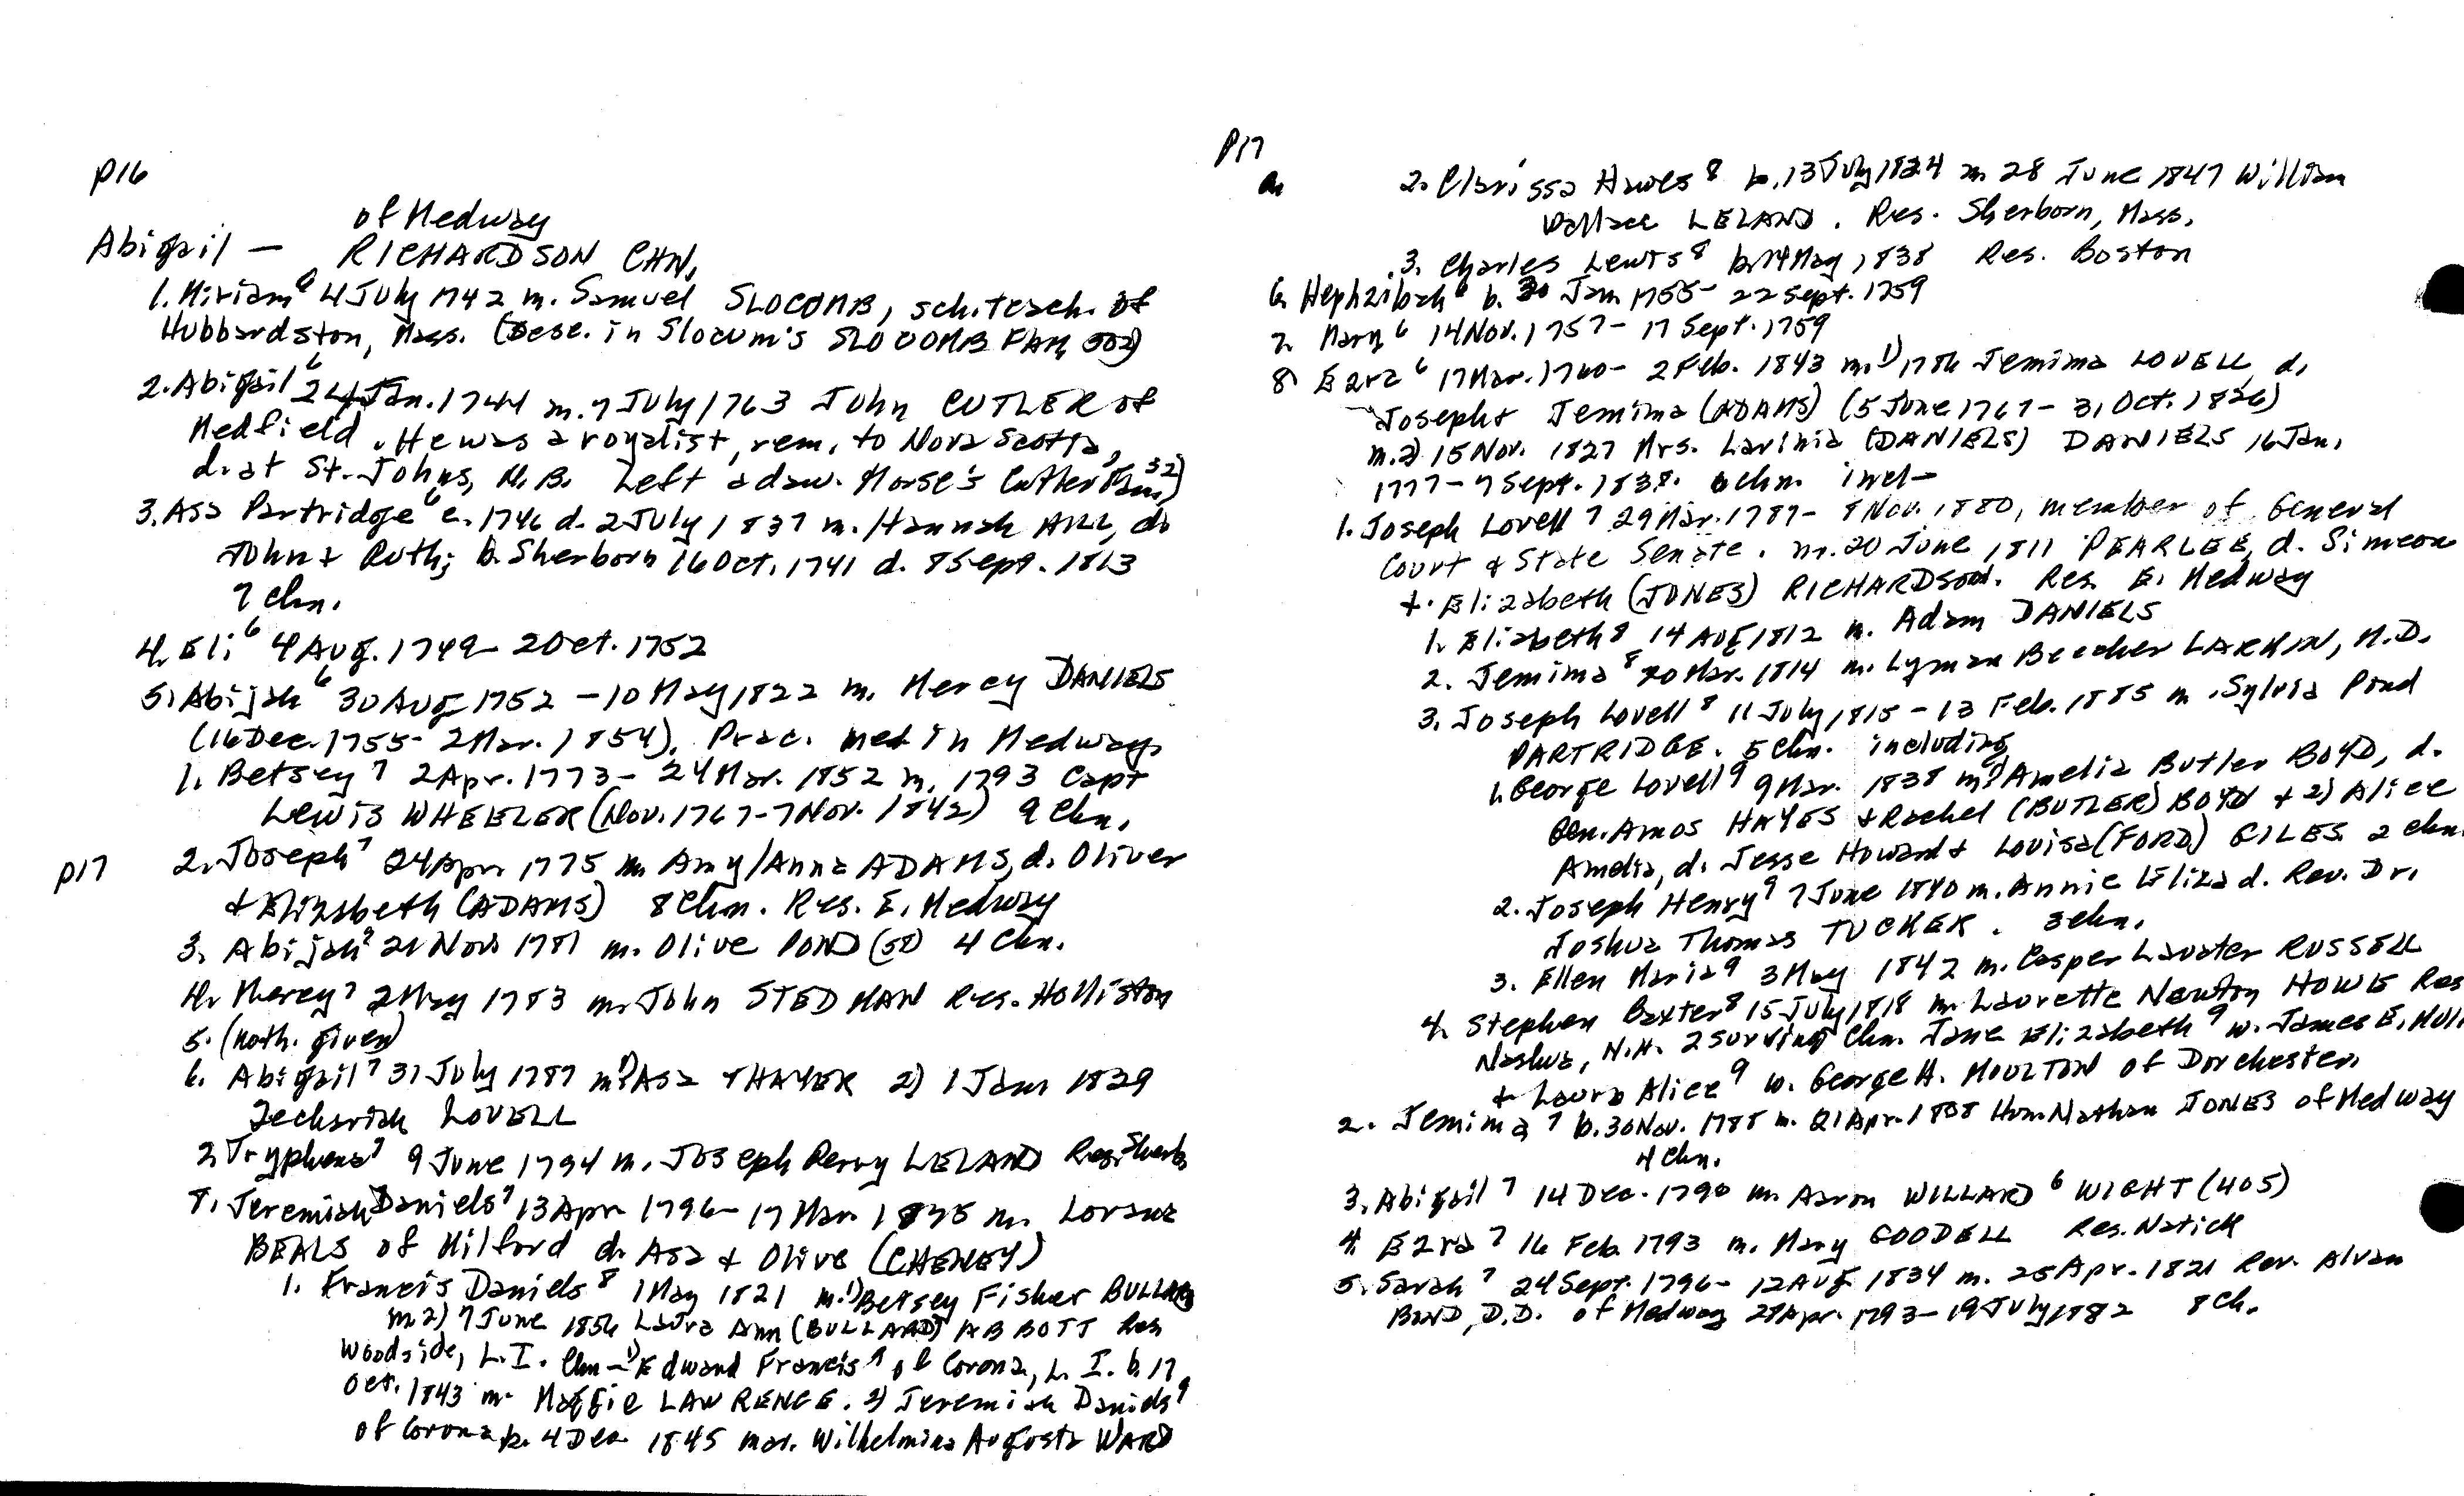 p16
of Medway
Abigail — RICHARDSON CHN,
1. Miriam 6 4 July 1742 m. Samuel SLOCOMB, sch. teach. of
Hubbardston, Mass. (Dese. in Slocum's SLOCOMB FAM 502)
2. Abigail 6 24 Jan. 1744 m. 7 July 1763 John CUTLER of
Medfield. He was a royalist, rem. to Nova Scotia,
d. at St. Johns, N.B. Left a dau. Morse's Cutler Fam 32)
3. Asa Partridge 6 c. 1746 d. 2 July 1837 m. Hannah HILL, d.
John & Ruth; b. Sherborn 16 Oct. 1741 d. 8 Sept. 1813
7 chn.
4. Eli 6 4 Aug. 1749 – 2 Oct. 1752
5. Abijah 6 30 Aug 1752 – 10 May 1822 m. Mercy DANIELS
(16 Dec. 1755 – 2 Mar. 1854). Prac. med in Medway.
1. Betsey 7 2 Apr. 1773 – 24 Mar. 1852 m. 1793 Capt
Lewis WHEELER (Nov. 1767 – 7 Nov. 1842) 9 chn.
p17 2. Joseph 7 24 Apr. 1775 m. Amy/Anna ADAMS, d. Oliver
& Elizabeth (ADAMS) 8 chn. Res. E. Medway
3. Abijah 7 21 Nov 1781 m. Olive POND (58) 4 chn.
4. Mercy 7 2 May 1783 m. John STEDMAN Res. Holliston
5. (noth. given)
6. Abigail 7 31 July 1787 m. 1) Asa THAYER 2) 1 Jan 1829
Zechariah LOVELL
7. Tryphena 7 9 June 1794 m. Joseph Perry LELAND Res. Sherb
8. Jeremiah Daniels 7 13 Apr 1796 – 17 Mar 1875 m. Lorana
BEALS of Milford d. Asa & Olive (CHENEY)
1. Francis Daniels 8 1 May 1821 m. 1) Betsey Fisher BULLARD
m 2) 7 June 1856 Laura Ann (BULLARD) ABBOTT Res
Woodside, L.I. Chn – 1) Edward Francis 9 of Corona, L.I. b. 17
Oct. 1843 m. Maggie LAWRENCE. 2) Jeremiah Daniels 9
of Corona b. 4 Dec 1845 mar. Wilhelmina Augusta WARD
p17
2. Clarissa Hawes 8 b. 13 July 1824 m. 28 June 1847 William
Wallace LELAND. Res. Sherborn, Mass.
3. Charles Lewis 8 b. 14 May 1838 Res. Boston
6. Hephzibah 6 b. 30 Jan 1755 – 22 Sept. 1759
7. Mary 6 14 Nov. 1757 – 17 Sept. 1759
8. Ezra 6 17 Mar. 1760 – 2 Feb. 1843 m. 1) 1786 Jemima LOVELL, d.
Joseph & Jemima (ADAMS) (5 June 1767 – 31 Oct. 1826)
m. 2) 15 Nov. 1827 Mrs. Lavinia (DANIELS) DANIELS 16 Jan.
1777 – 7 Sept. 1838. 6 chn. incl –
1. Joseph Lovell 7 29 Mar. 1787 – 8 Nov. 1880, member of General
Court & State Senate. m. 20 June 1811 PEARLEE, d. Simeon
& Elizabeth (JONES) RICHARDSON. Res. E. Medway
1. Elizabeth 8 14 Aug 1812 m. Adam DANIELS
2. Jemima 8 20 Mar. 1814 m. Lyman Beecher LARKIN, M.D.
3. Joseph Lovell 8 11 July 1815 – 13 Feb. 1885 m. Sylvia Pond
PARTRIDGE. 5 chn. including
1. George Lovell 9 9 Mar. 1838 m. 1) Amelia Butler BOYD, d.
Gen. Amos HAYES & Rachel (BUTLER) BOYD & 2) Alice
Amelia, d. Jesse Howard & Louisa (FORD) GILES 2 chn.
2. Joseph Henry 9 7 June 1840 m. Annie Eliza d. Rev. Dr.
Joshua Thomas TUCKER. 3 chn.
3. Ellen Maria 9 3 May 1842 m. Casper Lavater RUSSELL
4. Stephen Baxter 8 15 July 1818 m. Laurette Newton HOWE Res
Nashua, N.H. 2 surviving chn. Jane Elizabeth 9 w. James E.
& Laura Alice 9 w. George H. MOULTON of Dorchester
2. Jemima 7 b. 30 Nov. 1788 m. 21 Apr. 1808 Hon. Nathan JONES of Medway
4 chn.
3. Abigail 7 14 Dec. 1790 m. Aaron WILLARD 6 WIGHT (405)
4. Ezra 7 16 Feb. 1793 m. Mary GOODELL Res. Natick
5. Sarah 7 24 Sept. 1796 – 12 Aug 1834 m. 25 Apr. 1821 Rev. Alvan
BOND, D.D. of Medway 27 Apr. 1793 – 19 July 1882 8 ch.